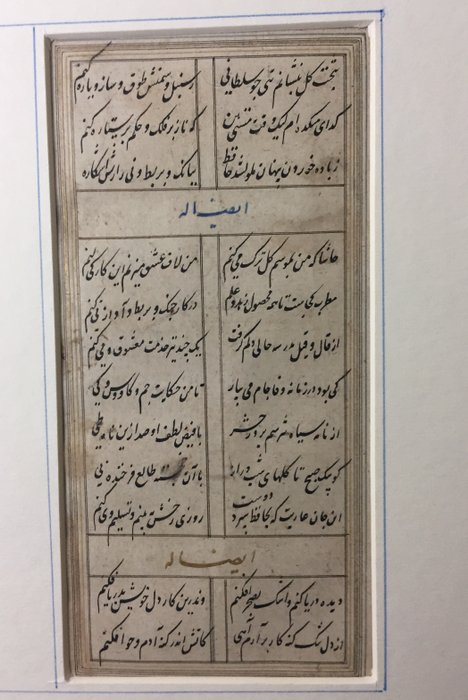 بتخت گل بنشانم بتی چو سلطانی ز سنبل و سمنش طوق و ساز و یاره کنم
گدای میکده ام لیک وقت مستی بین که ناز بر فلک و حکم بر ستاره کنم
ز باده خوردن پنهان ملول شد حافظ ببانک و بربط و نی رازش آشکاره
ایضا له
حاشا که من بموسم گل ترک می کنم من لاف عشق میزنم این کار کی کنم
مطرب کجاست تا همه محصول زهد و علم در کار چنک و بربط و آواز نی کنم
از قال و قیل مدرسه حالی دلم گرفت یک چند نیز خدمت معشوق و می کنم
کی بود در زمانه وفا جام می بیار تا من حکایت جم و کاووس و کی
از نامه سیاه نترسم بروز حشر با فیض لطف او صد ازین نامه طی
کو پیک صبح تا گلهای شب دراز با آن خجسته طالع فرخنده پی
این جان عاریت که بحافظ سپرد دوست روزی رخش ببینم و تسلیم وی کنم
ایضا له
دیده دریا کنم و اشک بصحرا فکنم وندرین کار دل خویش بدریا فکنم
از دل تنک گنه کار برآرم آهی کاتش اندر گنه آدم و حوا فکنم